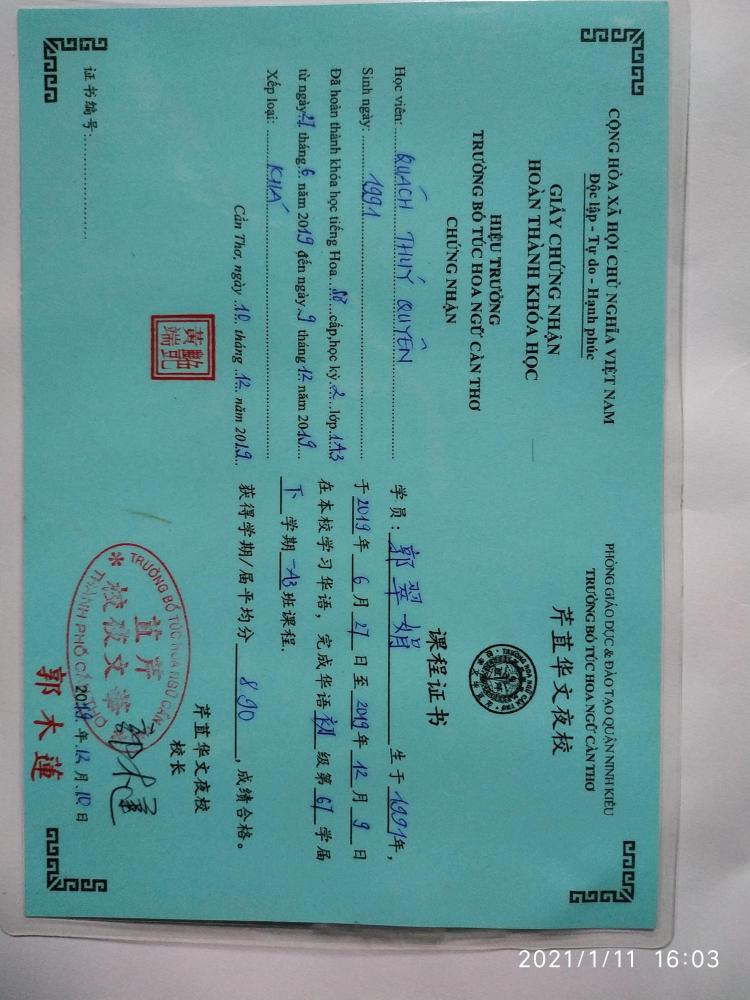 CỘNG HÒA XÃ HỘI CHỦ NGHĨA VIỆT NAM
Độc lập - Tự do - Hạnh phúc
GIẤY CHỨNG NHẬN
HOÀN THÀNH KHÓA HỌC
HIỆU TRƯỞNG
TRƯỜNG BỔ TÚC HOA NGỮ CẦN THƠ
CHỨNG NHẬN
Học viên: QUÁCH THUÝ QUYÊN
Sinh ngày: 1991
Đã hoàn thành khóa học tiếng Hoa cấp, học kỳ 2 lớp 1A3
từ ngày 27 tháng 6 năm 2019 đến ngày 9 tháng 12 năm 2019
Xếp loại: KHÁ
Cần Thơ, ngày 10 tháng 12 năm 2019
黃艷端
证书编号:
PHÒNG GIÁO DỤC & ĐÀO TẠO QUẬN NINH KIỀU
TRƯỜNG BỔ TÚC HOA NGỮ CẦN THƠ
芹苴华文夜校
课程证书
学员: 郭翠娟 生于 1991 年,
于 2019 年 6 月 27 日至 2019 年 12 月 9 日
在本校学习华语, 完成华语 初 级第 61 学届
下 学期 一A3 班课程.
获得学期/届平均分 8.90 , 成绩合格。
芹苴华文夜校
校长
TRƯỜNG BỔ TÚC HOA NGỮ CẦN THƠ
THÀNH PHỐ CẦN THƠ
芹苴
華文夜校
2019 年 12 月 10 日
郭木蓮
2021/1/11 16:03